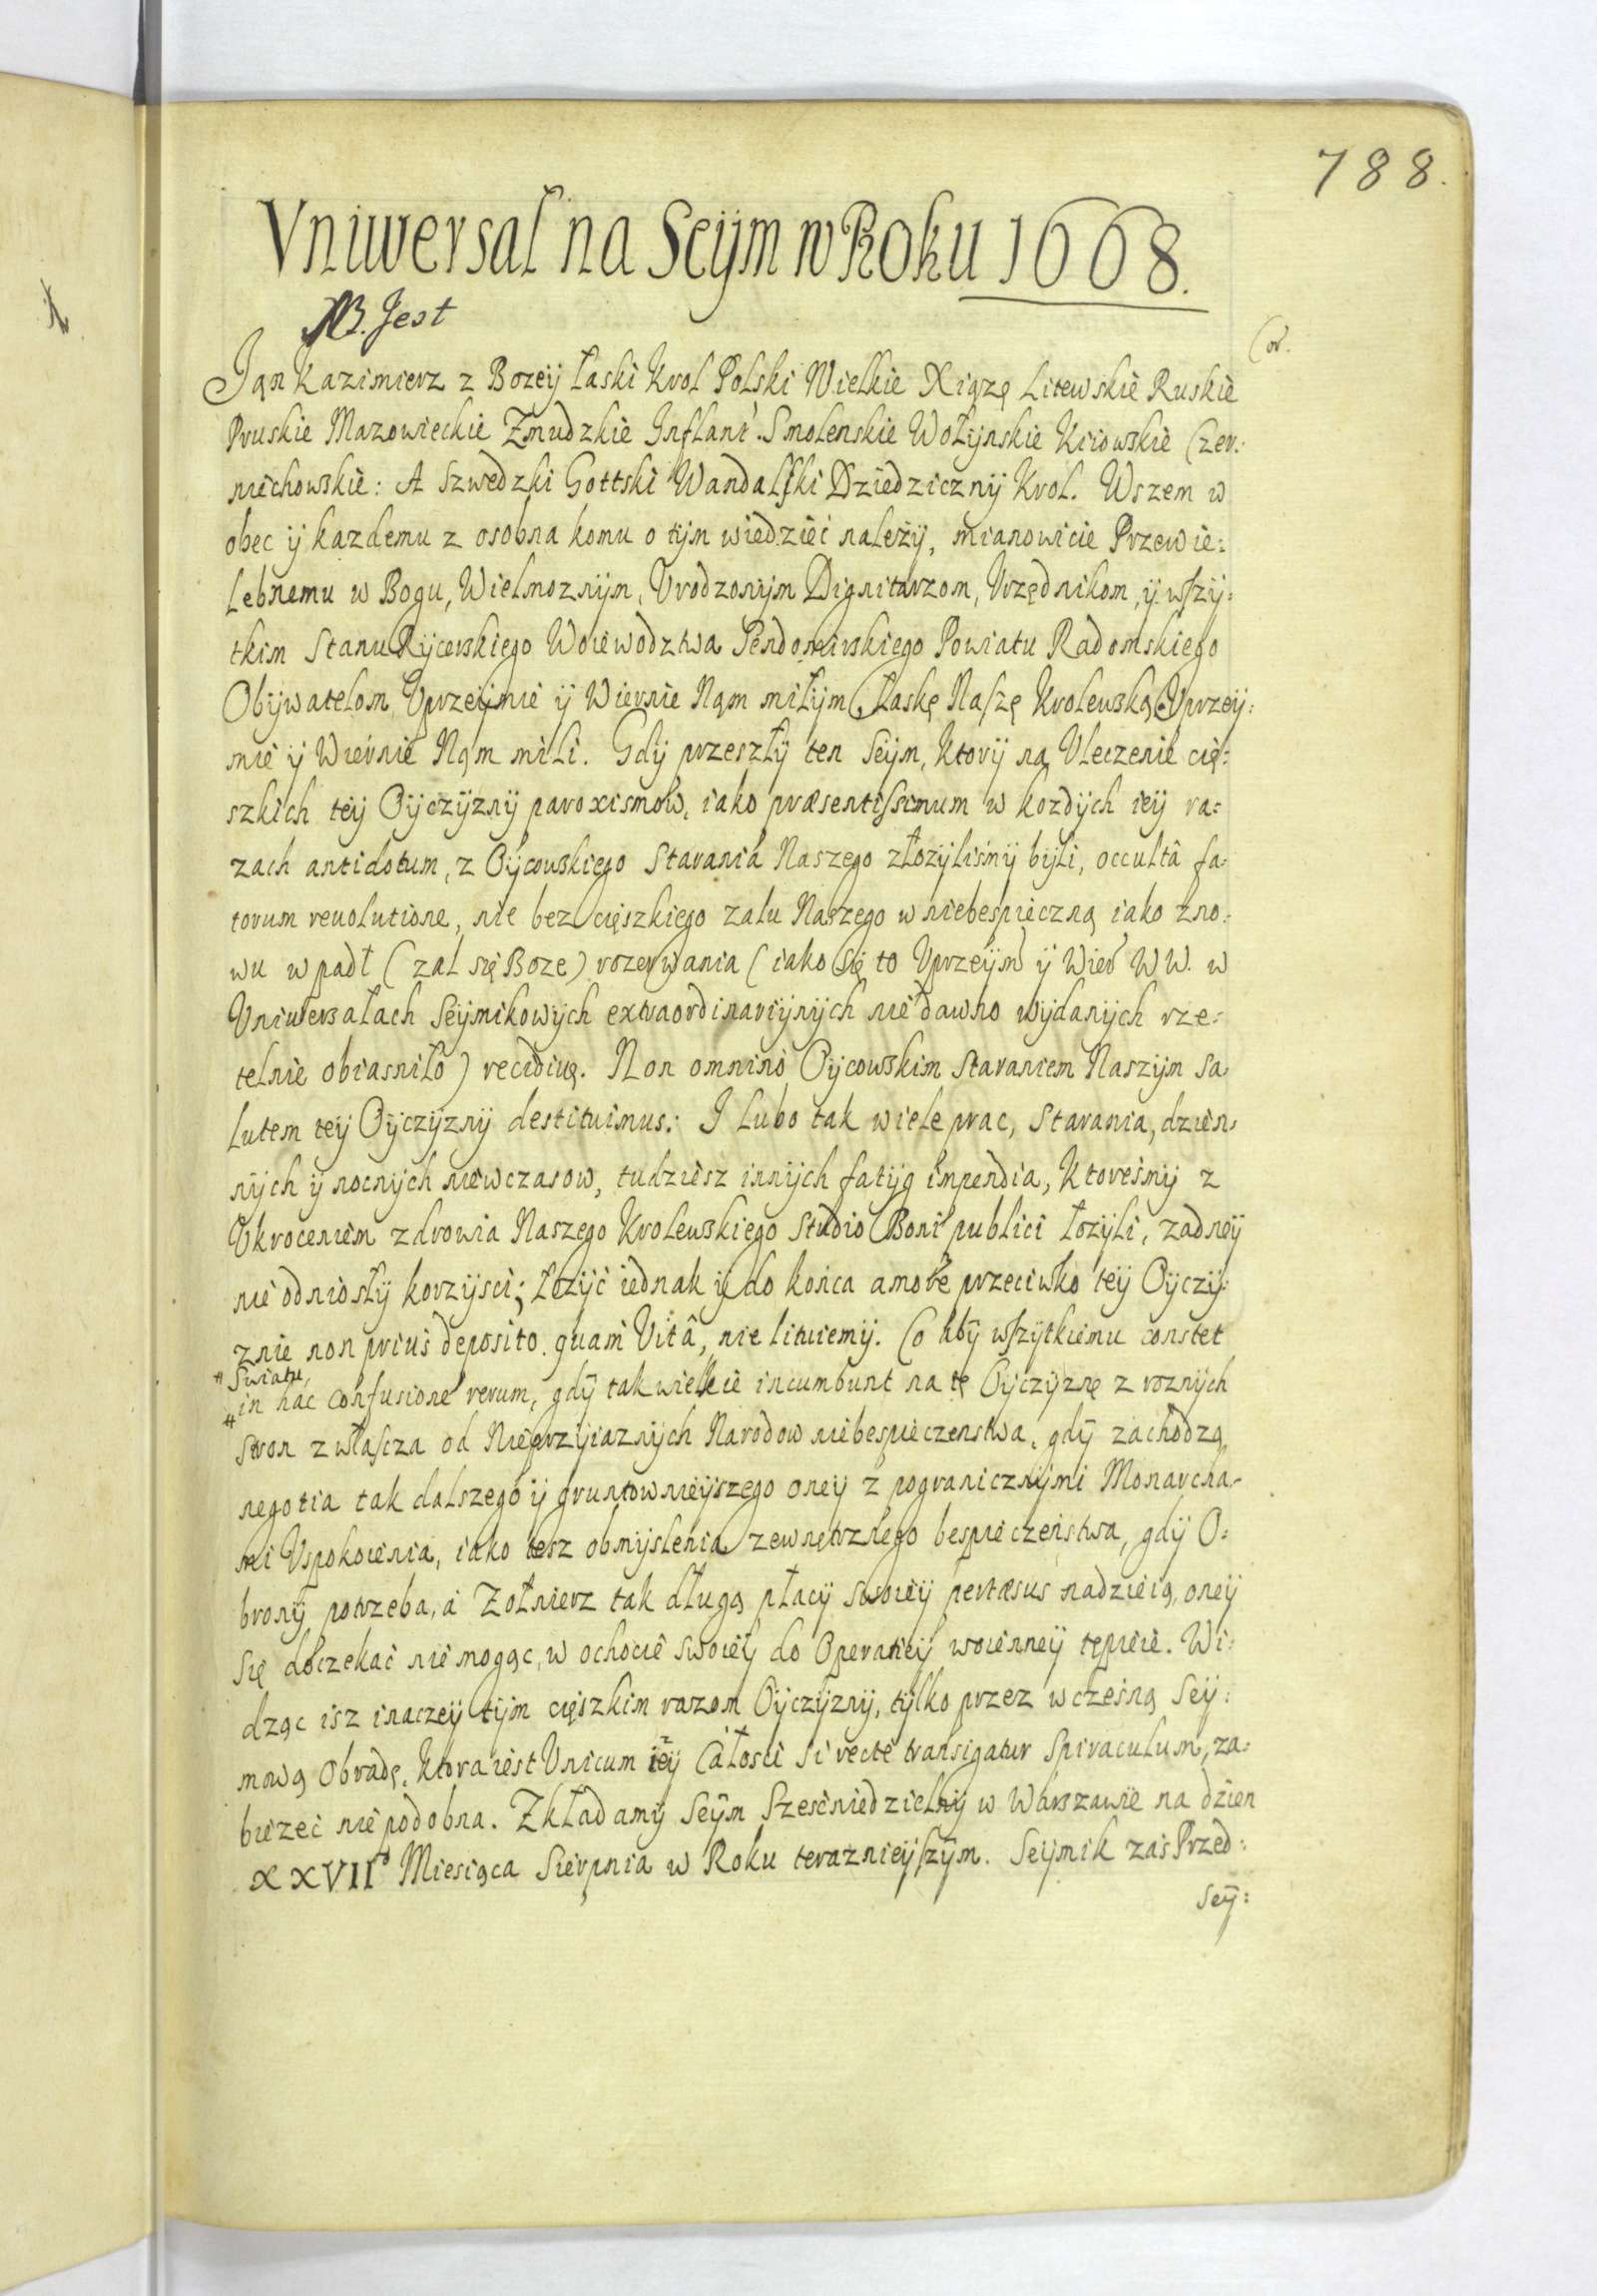 788.
Vniwersał na Seÿm w Roku 1668.
NB. Jest
Cor.
Jąn Kazimierz z Bozeÿ Łaski Krol Polski Wielkie Xiązę Litewskie Ruskie
Pruskie Mazowieckie Zmudzkie Inflant. Smolenskie Wołÿnskie Kiiowskie Czer:
niechowskie: A Szwedzki Gottski Wandalski Dziedzicznÿ Krol. Wszem w
obec ÿ kazdemu z osobna komu o tÿm wiedzieć należÿ, mianowicie Przewie:
Lebnemu w Bogu, Wielmoznÿm, Vrodzonÿm Dignitarzom, Vrzędnikom, ÿ wszÿ:
tkim Stanu Rÿcerskiego Woiewodztwa Sendomirskiego Powiatu Radomskiego
Obÿwatelom Vprzeÿmie ÿ Wiernie Nąm miłÿm Łaskę Naszę Krolewską Vprzeÿ:
mie ÿ Wiernie Nąm mili. Gdÿ przeszłÿ ten Seÿm, Ktorÿ na Vleczenie cię:
szkich teÿ Oÿczÿznÿ paroxismow, iako præsentissimum w kozdÿch ieÿ ra:
zach antidotum, z Oÿcowskiego Starania Naszego złozÿliśmÿ bÿli, occultâ fa:
torum reuolutione, nie bez cięszkiego zalu Naszego w niebespieczną iako zno:
wu wpadł (zal się Boze) rozerwania (iako się to Vprzeÿm ÿ Wier WW. w
Vniwersałach Seÿmikowÿch extraordinarÿnÿch nie dawno wÿdanÿch rze:
telnie obiasniło) recidiuę. Non omnino Oÿcowskim Staraniem Naszÿm Sa:
lutem teÿ Oÿczÿznÿ destituimus: I lubo tak wiele prac, Starania, dzien:
nÿch ÿ nocnÿch niewczasow, tudziesz innÿch fatÿg impendia, Ktoreśmÿ z
Vkroceniem zdrowia Naszego Krolewskiego Studio Boni publici łozÿli, zadneÿ
nie odniosłÿ korzÿsci; Łozÿć iednak ÿ do końca amore przeciwko teÿ Oÿczÿ:
znie non prius deposito quam Vitâ, nie lituiemÿ. Co abÿ wszÿtkiemu constet
# Swiatu,
# in hac confusione rerum, gdÿ tak wielkie incumbunt na tę Oÿczÿznę z roznÿch
Stron zwłascza od Nieprzÿiaznÿch Narodow niebespieczenstwa, gdÿ zachodzą
negotia tak dalszego ÿ gruntownieÿszego oneÿ z pogranicznÿmi Monarcha-
mi Vspokoienia, iako tesz obmyslenia zewnętrznego bespieczeństwa, gdÿ O:
bronÿ potrzeba, a Zołnierz tak długą płacÿ swoieÿ pertæsus nadzieią, oneÿ
się doczekać nie mogąc, w ochocie swoieÿ do Operatieÿ woienneÿ tępieie. Wi:
dząc isz inaczeÿ tÿm cięszkim razom Oÿczÿznÿ, tÿlko przez wczesną Seÿ:
mową Obradę, Ktora iest Vnicum ieÿ Całosci si recte transigatur Spiraculum, za:
biezec nie podobna. Zkładamÿ Seÿm Szescniedzielnÿ w Warszawie na dzien
XXVII° Miesiąca Sierpnia w Roku teraznieÿszÿm. Seÿmik zas Przed:
Seÿ: